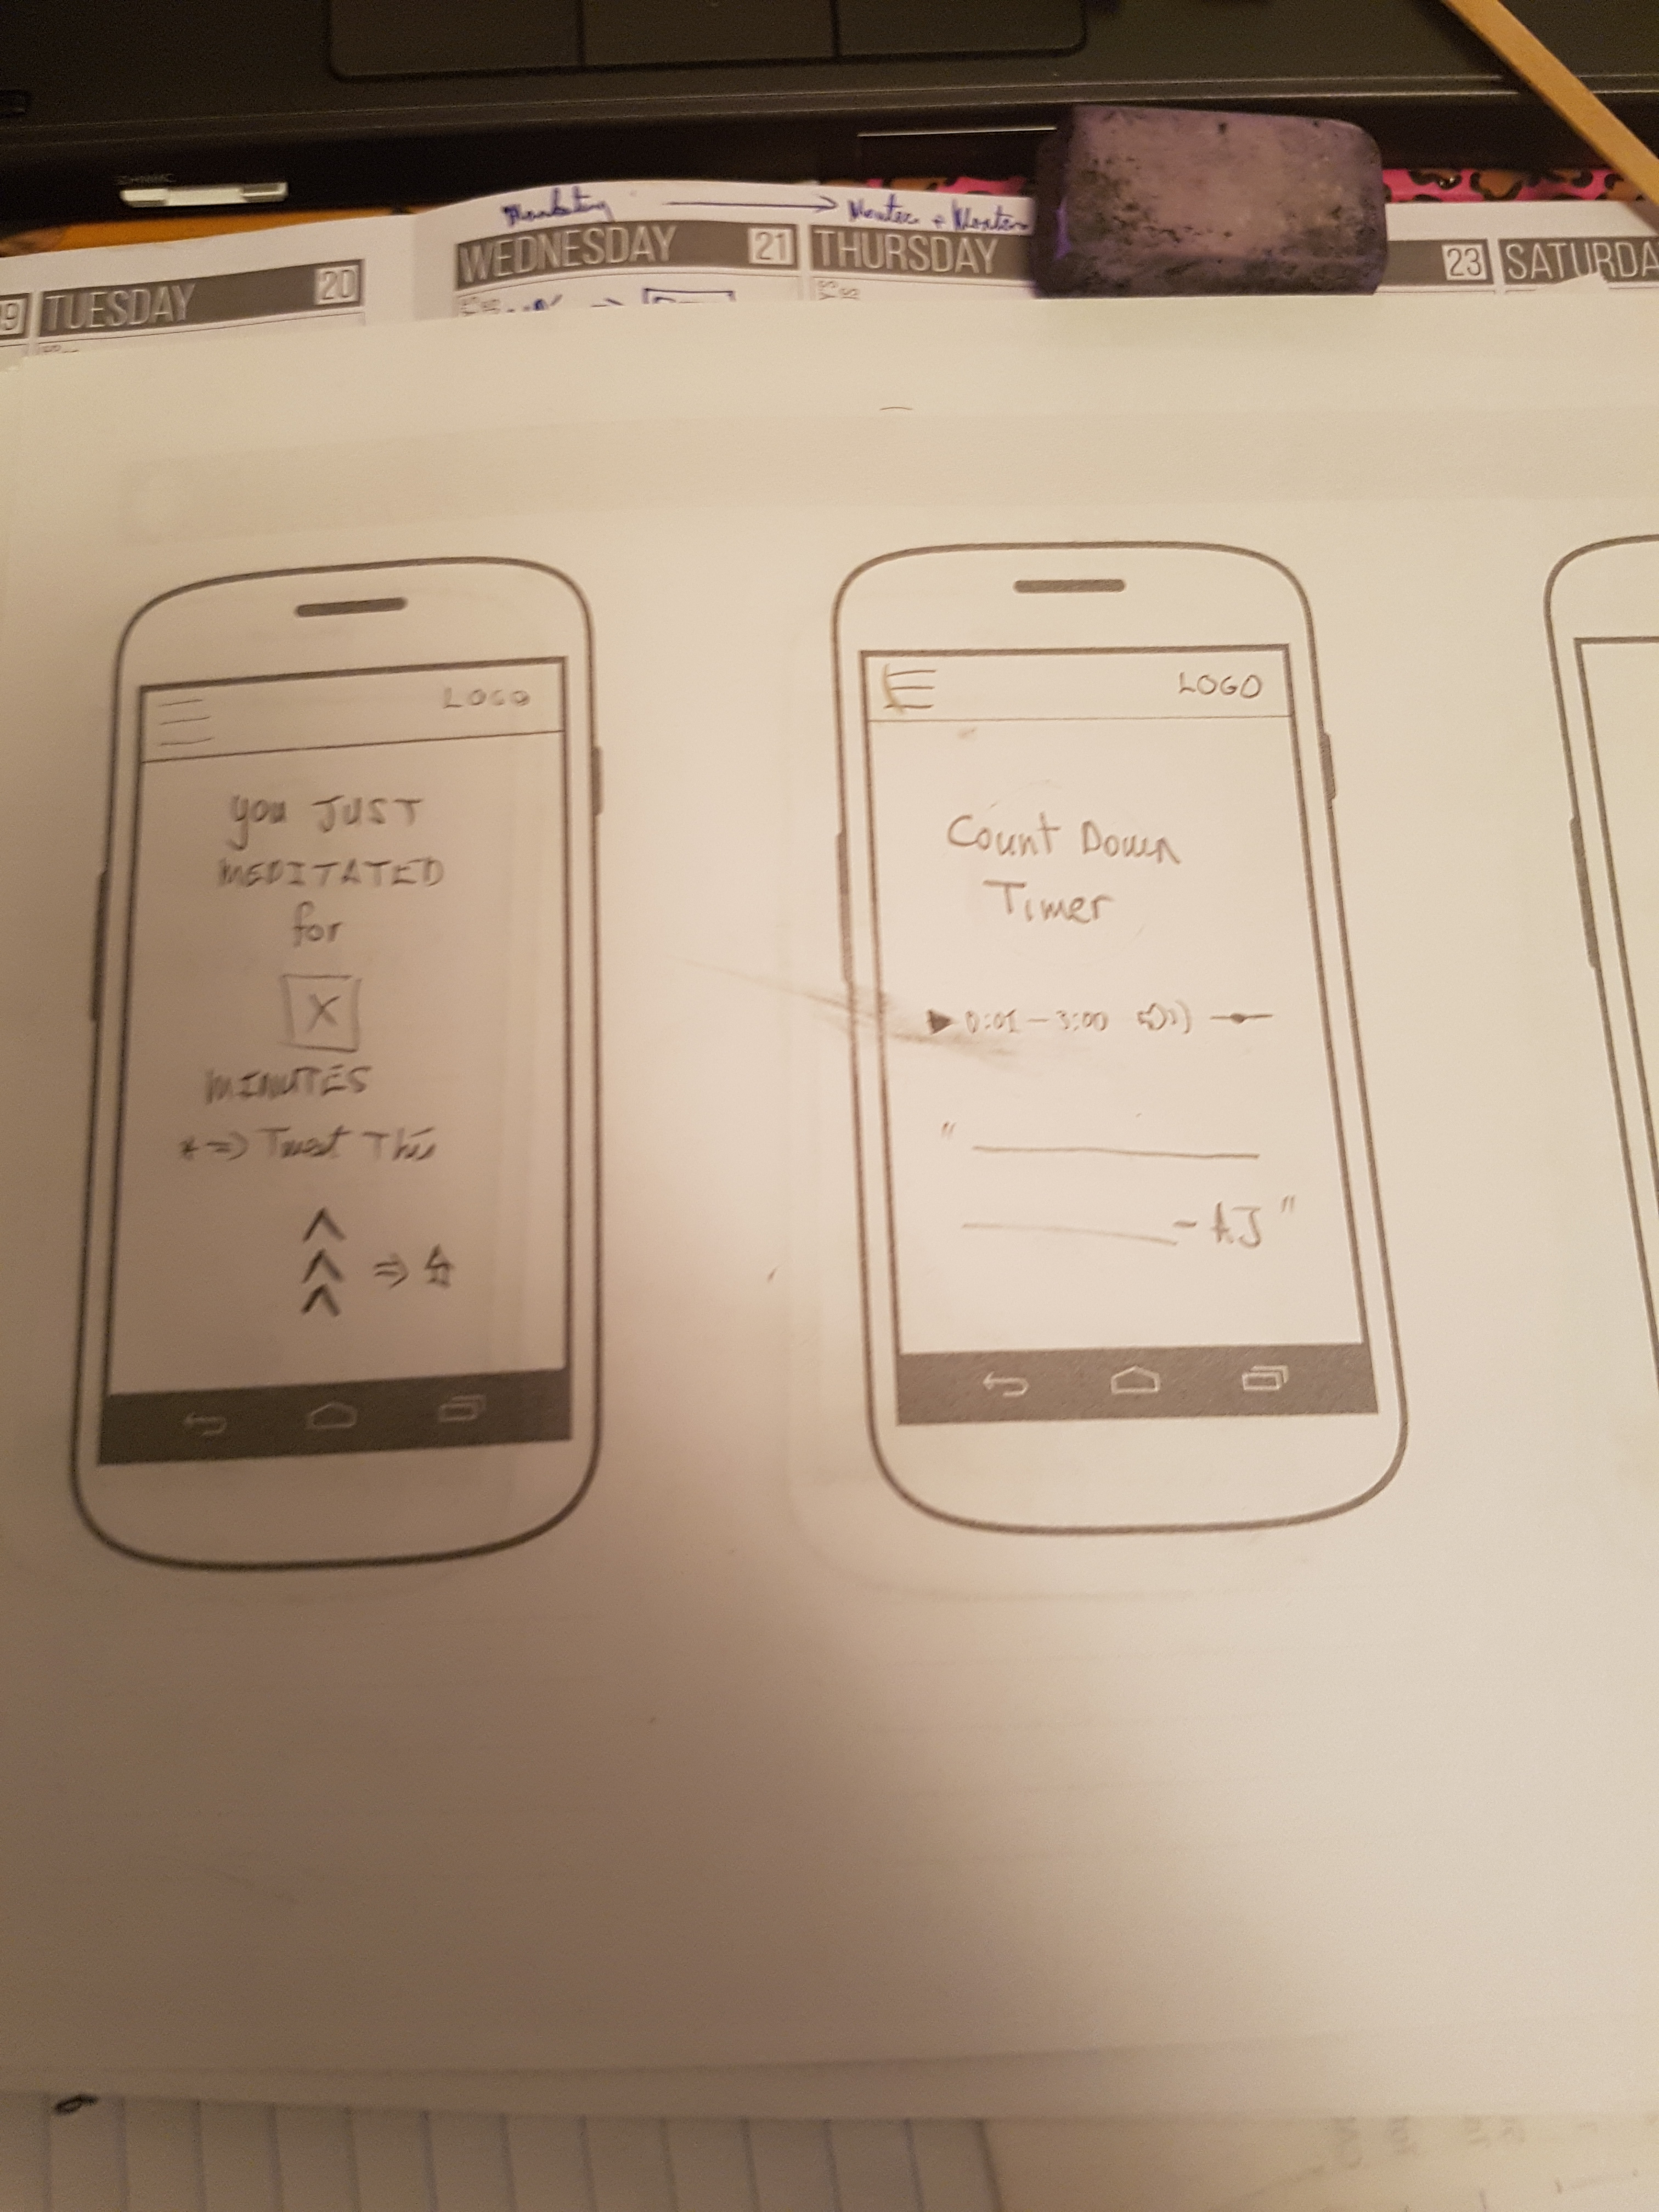 TUESDAY 20
WEDNESDAY 21
THURSDAY
23
SATURDA
LOGO
you JUST
MEDITATED
for
X
MINUTES
* => Tweet This
=>
LOGO
Count Down
Timer
0:01 - 3:00
"
- AJ "